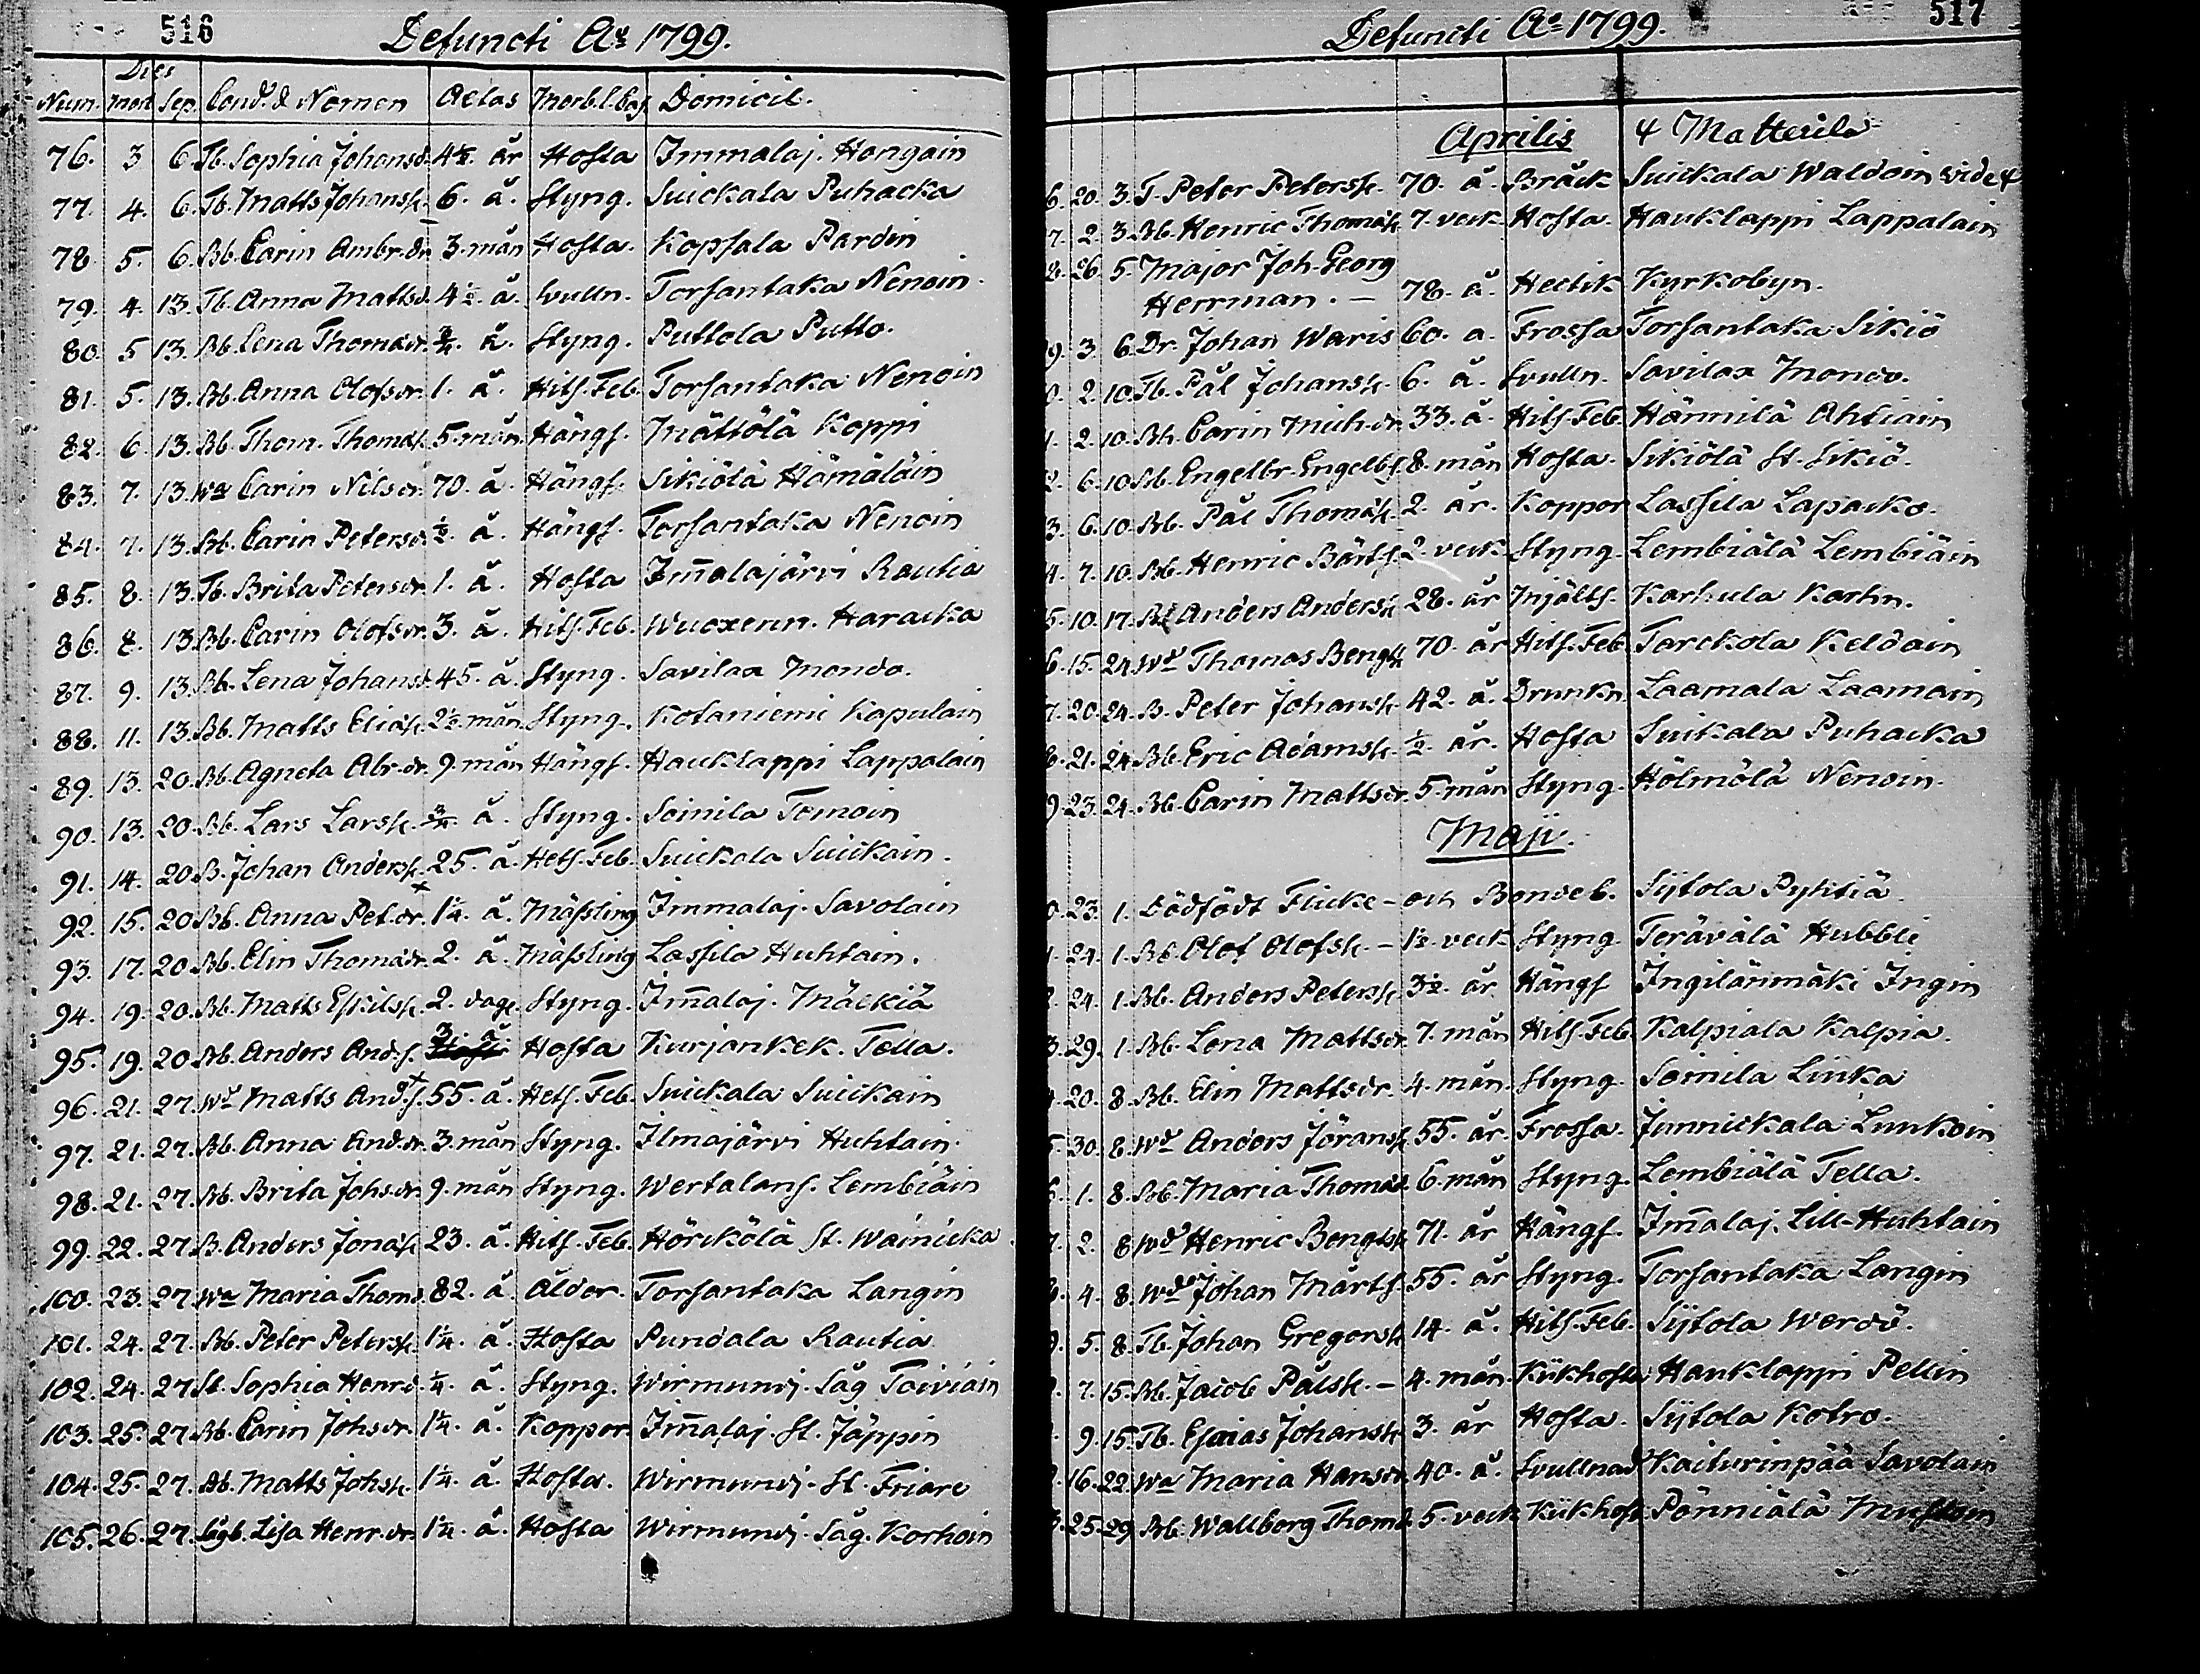 516
Defuncti Aº 1799.
Dies
Num. mort Sep. Cond. & Nomen Aetas Morb. l. Cas. Domicil.
76. 3 6. Tb. Sophia Johansd. 4½. år Hosta Immalaj. Hongain
77. 4. 6. Tb. Matts Johanss. 6. å. Styng. Suickala Puhacka
78. 5. 6. Bb. Carin Ambr.dr. 3. mån Hosta. Kopsala Parden
79. 4. 13. Tb. Anna Mattsd. 4½. å. Svulln. Torsantaka Nenoin.
80. 5 13. Bb. Lena Thomædr. ¾. å. Styng. Puttola Putto.
81. 5. 13. Bb. Anna Olofsdr. 1. å. Hits. Feb. Torsantaka Nenoin
82. 6. 13. Bb. Thom. Thomæs. 5. mån. Hängs. Mättölä Koppi
83. 7. 13. Wa Carin Nilsdr. 70. å. Hängs. Sikiölä Hämäläin
84. 7. 13. Bb. Carin Petersd. ½. å. Hängs. Torsantaka Nenoin
85. 8. 13. Tb. Brita Petersdr. 1. å. Hosta Im̄alajärvi Rautia
86. 8. 13. Bb. Carin Olofsdr. 3. å. Hits. Feb. Wuoxenn. Haracka
87. 9. 13. Bb. Lena Johansd. 45. å. Styng. Savilax Mondo.
88. 11. 13. Bb. Matts Eliæs. 2½. mån Styng. Kotaniemi Kapulain
89. 13. 20. Bb. Agneta Abr.dr. 9. mån Hängs. Hauklappi Lappalain
90. 13. 20. Bb. Lars Larss. ¾. å. Styng. Soinila Tomoin
91. 14. 20. B. Johan Anderss. 25. å. Hets. Feb. Suickala Suickain.
92. 15. 20. Bb. Anna Pet.dr. 1¼. å. Mässling Immalaj. Savolain
93. 17. 20. Bb. Elin Thomædr. 2. å. Mässling Lassila Huhtain.
94. 19. 20. Bb. Matts Eskilss. 2. dagr. Styng. Im̄alaj. Mäckiä
95. 19. 20. Bb. Anders And.s. 3. å. Hosta Kurjankek. Tella.
96. 21. 27. Wd Matts And.s. 55. å. Hets. Feb. Suickala Suickain
97. 21. 27. Bb. Anna And.dr. 3. mån Styng. Ilmajärvi Huhtain.
98. 21. 27. Bb. Brita Johsdr. 9. mån Styng. Wertalans. Lembiäin
99. 22. 27. B. Anders Jonæs. 23. å. Hits. Feb. Hörckölä St. Wainicka.
100. 23. 27. Wa Maria Thoms. 82. å. Ålder. Torsantaka Langin
101. 24. 27. Bb. Peter Peterss. 1¼. å. Hosta Pundala Rautia
102. 24. 27. St. Sophia Henrd. ¼. å. Styng. Wirmundj. Såg Toiviain
103. 25. 27. Bb. Carin Johsdr. 1¼. å. Koppor Im̄alaj. St. Jäppin
104. 25. 27. Bb. Matts Johss. 1¼. å. Hosta. Wirmundj. St. Friare
105. 26. 27. Lisa Henr.dr. 1¼. å. Hosta Wirmundj. Såg. Korhoin
517
Defuncti Aº 1799.
Aprilis 4 Matterila
6. 20. 3. T. Peter Peterss. 70. å. Bräck Suickala Waldoin vide 4
7. 2. 3. Bb. Henric Thomæs. 7. veck Hosta. Hauklappi Lappalain
26. 5. Major Joh. Georg
Herrman. — 78. å. Hectik Kyrkobyn.
9. 3. 6. Dr. Johan Waris 60. å. Frossa Torsantaka Sikiö
0. 2. 10. Tb. Pål Johanss. 6. å. Svulln. Savilax Mondo.
1. 2. 10. Bh. Carin Mich.dr. 33. å. Hits. Feb. Härmilä Ahtiain
2. 6. 10. Bb. Engelbr. Engelbs. 8. mån Hosta. Sikiölä St. Sikiö.
3. 6. 10. Bb. Pål Thomæs. 2. år. Koppor Lassila Lapacko.
4. 7. 10. Bb. Henric Bärts. 2. veck Styng. Lembiälä Lembiäin
5. 10. 17. Anders Anderss. 28. år Mjälts. Karhula Karhn.
6. 15. 24. Wd Thomas Bengts. 70. år Hits. Feb. Tarckola Keldain
7. 20. 24. B. Peter Johanss. 42. å. Drunkn. Laamala Laamain
8. 21. 24. Bb. Eric Adamss. ½. år. Hosta Suikala Puhacka
9. 23. 24. Bb. Carin Mattsdr. 5. mån Styng. Hölmölä Nenoin.
Maji.
0. 23. 1. Dödfödt Flicke- och Bondeb. Sijtola Pyhtiä
1. 24. 1. Bb. Olof Olofss. — 1½. veck Styng. Terävälä Hubbli
2. 24. 1. Bb. Anders Peterss. 3½. år Hängs Ingilänmäki Ingin
3. 29. 1. Bb. Lena Mattsdr. 7. mån Hits. Feb. Kalpiala Kalpia.
4. 20. 8. Bb. Elin Mattsdr. 4. mån. Styng. Soinila Linka
5. 30. 8. Wd Anders Jöranss. 55. år. Frossa. Junnickala Lunkoin
6. 1. 8. Bb. Maria Thomæd. 6. mån Styng. Lembiälä Tella.
7. 2. 8. Wd Henric Bengtss. 71. år Hängs. Im̄alaj. Lill-Huhtain
8. 4. 8. Wd Johan Mårts. 55. år Styng. Torsantaka Langin
9. 5. 8. Tb. Johan Gregorss. 14. å. Hits. Feb. Sijtola Werdö.
7. 15. Bb. Jacob Pålss. — 4. mån. Kikhosta Hauklappi Pellin
9. 15. Tb. Esaias Johanss. 3. år Hosta. Sijtola Kotro.
16. 22. Wa Maria Hansdr. 40. å. Svullnad Kaiturinpää Savolain
25. 29. Bb. Wallborg Thomd. 5. veck Kikhost. Pönniälä Mustoin